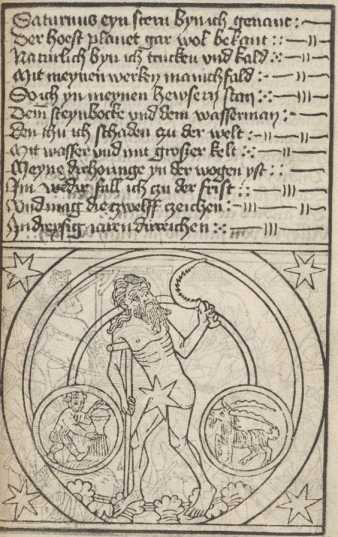 Saturnus eyn stern byn ich genant :·
Der hoest planet gar wol bekant ::
Naturlich byn ich trucken und kald :·
Mit meynen werken manichfald :·
So ich yn meynen hewsern stan :·:
Dem steynbocke und dem wasserman :·
Den thu ich schaden zu der welt :·
Mit wasser und mit großer kelt :·:
Meyne erhohunge yn der wogen yst ::
Im weder fall ich zu der frist ::
Und mag die zwelff zeichen :·
In dreysig iaren durreichen :·: